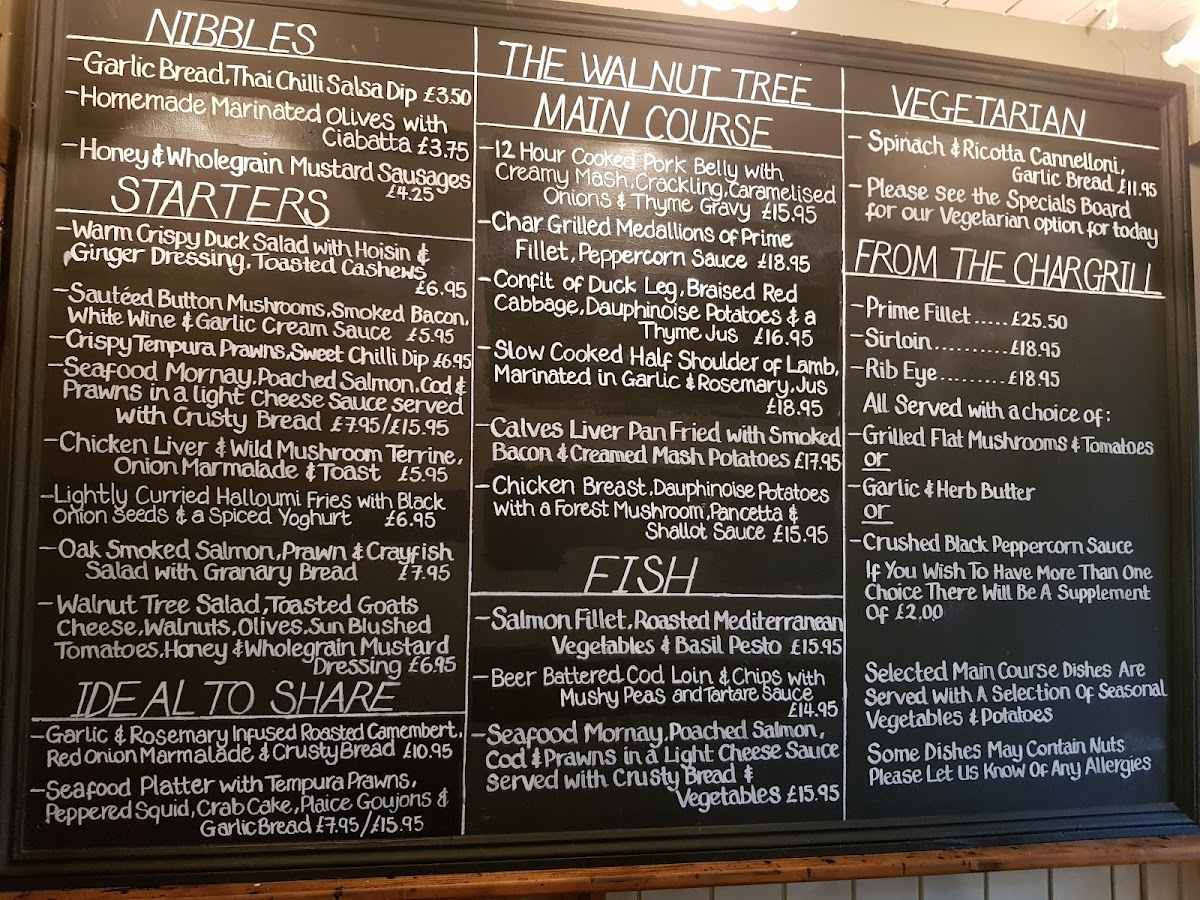 NIBBLES
-Garlic Bread, Thai Chilli Salsa Dip £3.50
-Homemade Marinated Olives with
Ciabatta £3.75
-Honey & Wholegrain Mustard Sausages
£4.25
STARTERS
-Warm Crispy Duck Salad with Hoisin &
Ginger Dressing, Toasted Cashews
£6.95
-Sautéed Button Mushrooms, Smoked Bacon,
White Wine & Garlic Cream Sauce £5.95
-Crispy Tempura Prawns, Sweet Chilli Dip £6.95
-Seafood Mornay, Poached Salmon, Cod &
Prawns in a light Cheese Sauce served
with Crusty Bread £7.95/£15.95
-Chicken Liver & Wild Mushroom Terrine,
Onion Marmalade & Toast £5.95
-Lightly Curried Halloumi Fries with Black
Onion Seeds & a Spiced Yoghurt £6.95
-Oak Smoked Salmon, Prawn & Crayfish
Salad with Granary Bread £7.95
-Walnut Tree Salad, Toasted Goats
Cheese, Walnuts, Olives, Sun Blushed
Tomatoes, Honey & Wholegrain Mustard
Dressing £6.95
IDEAL TO SHARE
-Garlic & Rosemary Infused Roasted Camembert,
Red Onion Marmalade & Crusty Bread £10.95
-Seafood Platter with Tempura Prawns,
Peppered Squid, Crab Cake, Plaice Goujons &
Garlic Bread £7.95/£15.95
THE WALNUT TREE
MAIN COURSE
-12 Hour Cooked Pork Belly with
Creamy Mash, Crackling, Caramelised
Onions & Thyme Gravy £15.95
-Char Grilled Medallions of Prime
Fillet, Peppercorn Sauce £18.95
-Confit of Duck Leg, Braised Red
Cabbage, Dauphinoise Potatoes & a
Thyme Jus £16.95
-Slow Cooked Half Shoulder of Lamb,
Marinated in Garlic & Rosemary, Jus
£18.95
-Calves Liver Pan Fried with Smoked
Bacon & Creamed Mash Potatoes £17.95
-Chicken Breast, Dauphinoise Potatoes
with a Forest Mushroom, Pancetta &
Shallot Sauce £15.95
FISH
-Salmon Fillet, Roasted Mediterranean
Vegetables & Basil Pesto £15.95
-Beer Battered Cod Loin & Chips with
Mushy Peas and Tartare Sauce
£14.95
-Seafood Mornay, Poached Salmon,
Cod & Prawns in a Light Cheese Sauce
served with Crusty Bread &
Vegetables £15.95
VEGETARIAN
-Spinach & Ricotta Cannelloni,
Garlic Bread £11.95
-Please see the Specials Board
for our Vegetarian option for today
FROM THE CHARGRILL
-Prime Fillet.....£25.50
-Sirloin..........£18.95
-Rib Eye.........£18.95
All Served with a choice of:
-Grilled Flat Mushrooms & Tomatoes
or
-Garlic & Herb Butter
or
-Crushed Black Peppercorn Sauce
If You Wish To Have More Than One
Choice There Will Be A Supplement
Of £2.00
Selected Main Course Dishes Are
Served With A Selection Of Seasonal
Vegetables & Potatoes
Some Dishes May Contain Nuts
Please Let Us Know Of Any Allergies